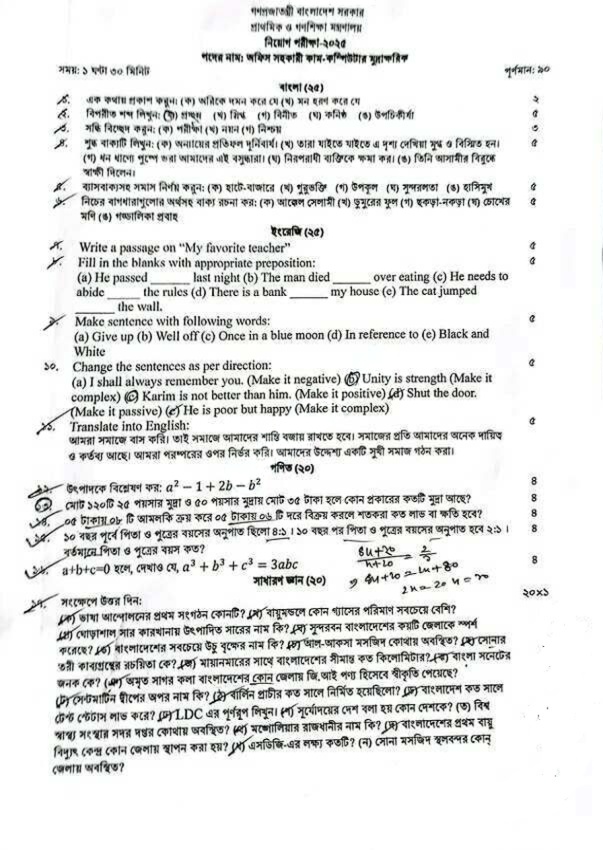 গণপ্রজাতন্ত্রী বাংলাদেশ সরকার
প্রাথমিক ও গণশিক্ষা মন্ত্রণালয়
নিয়োগ পরীক্ষা-২০২৫
পদের নাম: অফিস সহকারী কাম-কম্পিউটার মুদ্রাক্ষরিক
সময়: ১ ঘন্টা ৩০ মিনিট পূর্ণমান: ৯০
বাংলা (২৫)
১. এক কথায় প্রকাশ করুন: (ক) অরিকে দমন করে যে (খ) মন হরণ করে যে ২
২. বিপরীত শব্দ লিখুন: (ক) প্রচ্ছন্ন (খ) স্নিগ্ধ (গ) বিনীত (ঘ) কনিষ্ঠ (ঙ) উপচিকীর্ষা ৫
৩. সন্ধি বিচ্ছেদ করুন: (ক) পরীক্ষা (খ) নয়ন (গ) নিশ্চয় ৩
৪. শুদ্ধ বাক্যটি লিখুন: (ক) অন্যায়ের প্রতিফল দূর্নিবার্য। (খ) তারা যাইতে যাইতে এ দৃশ্য দেখিয়া মুগ্ধ ও বিস্মিত হন। ৫
(গ) ধন ধান্যে পুষ্পে ভরা আমাদের এই বসুন্ধরা। (ঘ) নিরপরাধী ব্যক্তিকে ক্ষমা কর। (ঙ) তিনি আসামীর বিরুদ্ধে
স্বাক্ষী দিলেন।
৫. ব্যাসবাক্যসহ সমাস নির্ণয় করুন: (ক) হাটে-বাজারে (খ) গুরুভক্তি (গ) উপকূল (ঘ) সুন্দরলতা (ঙ) হাসিমুখ ৫
৬. নিচের বাগধারাগুলোর অর্থসহ বাক্য রচনা কর: (ক) আক্কেল সেলামী (খ) ডুমুরের ফুল (গ) হ-কড়া-নকড়া (ঘ) চোখের ৫
মণি (ঙ) গড্ডালিকা প্রবাহ
ইংরেজি (২৫)
৭. Write a passage on “My favorite teacher” ৫
৮. Fill in the blanks with appropriate preposition: ৫
(a) He passed ______ last night (b) The man died ______ over eating (c) He needs to
abide ______ the rules (d) There is a bank ______ my house (e) The cat jumped
______ the wall.
৯. Make sentence with following words: ৫
(a) Give up (b) Well off (c) Once in a blue moon (d) In reference to (e) Black and
White
১০. Change the sentences as per direction: ৫
(a) I shall always remember you. (Make it negative) (b) Unity is strength (Make it
complex) (c) Karim is not better than him. (Make it positive) (d) Shut the door.
(Make it passive) (e) He is poor but happy (Make it complex)
১১. Translate into English: ৫
আমরা সমাজে বাস করি। তাই সমাজে আমাদের শান্তি বজায় রাখতে হবে। সমাজের প্রতি আমাদের অনেক দায়িত্ব
ও কর্তব্য আছে। আমরা পরস্পরের ওপর নির্ভর করি। আমাদের উদ্দেশ্য একটি সুখী সমাজ গঠন করা।
গণিত (২০)
১২. উৎপাদকে বিশ্লেষণ কর: a² − 1 + 2b − b² ৪
১৩. মোট ১২০টি ২৫ পয়সার মুদ্রা ও ৫০ পয়সার মুদ্রায় মোট ৩৫ টাকা হলে কোন প্রকারের কতটি মুদ্রা আছে? ৪
১৪. ০৫ টাকায় ০৮ টি আমলকি ক্রয় করে ০৫ টাকায় ০৬ টি দরে বিক্রয় করলে শতকরা কত লাভ বা ক্ষতি হবে? ৪
১৫. ১০ বছর পূর্বে পিতা ও পুত্রের বয়সের অনুপাত ছিলো ৪:১ । ১০ বছর পর পিতা ও পুত্রের বয়সের অনুপাত হবে ২:১ । ৪
বর্তমানে পিতা ও পুত্রের বয়স কত?
১৬. a+b+c=0 হলে, দেখাও যে, a³ + b³ + c³ = 3abc ৪
সাধারণ জ্ঞান (২০)
১৭. সংক্ষেপে উত্তর দিন: ২০×১
(ক) ভাষা আন্দোলনের প্রথম সংগঠন কোনটি? (খ) বায়ুমন্ডলে কোন গ্যাসের পরিমাণ সবচেয়ে বেশি?
(গ) ঘোড়াশাল সার কারখানায় উৎপাদিত সারের নাম কি? (ঘ) সুন্দরবন বাংলাদেশের কয়টি জেলাকে স্পর্শ
করেছে? (ঙ) বাংলাদেশের সবচেয়ে উচু বৃক্ষের নাম কি? (চ) আল-আকসা মসজিদ কোথায় অবস্থিত? (ছ) সোনার
তরী কাব্যগ্রন্থের রচয়িতা কে? (জ) মায়ানমারের সাথে বাংলাদেশের সীমান্ত কত কিলোমিটার? (ঝ) বাংলা সনেটের
জনক কে? (ঞ) অমৃত সাগর কলা বাংলাদেশের কোন জেলায় জি.আই পণ্য হিসেবে স্বীকৃতি পেয়েছে?
(ট) সেন্টমার্টিন দ্বীপের অপর নাম কি? (ঠ) বার্লিন প্রাচীর কত সালে নির্মিত হয়েছিলো? (ড) বাংলাদেশ কত সালে
টেস্ট স্টেটাস লাভ করে? (ঢ) LDC এর পূর্ণরূপ লিখুন। (ণ) সূর্যোদয়ের দেশ বলা হয় কোন দেশকে? (ত) বিশ্ব
স্বাস্থ্য সংস্থার সদর দপ্তর কোথায় অবস্থিত? (থ) মঙ্গোলিয়ার রাজধানীর নাম কি? (দ) বাংলাদেশের প্রথম বায়ু
বিদ্যুৎ কেন্দ্র কোন জেলায় স্থাপন করা হয়? (ধ) এসডিজি-এর লক্ষ্য কতটি? (ন) সোনা মসজিদ স্থলবন্দর কোন্
জেলায় অবস্থিত?